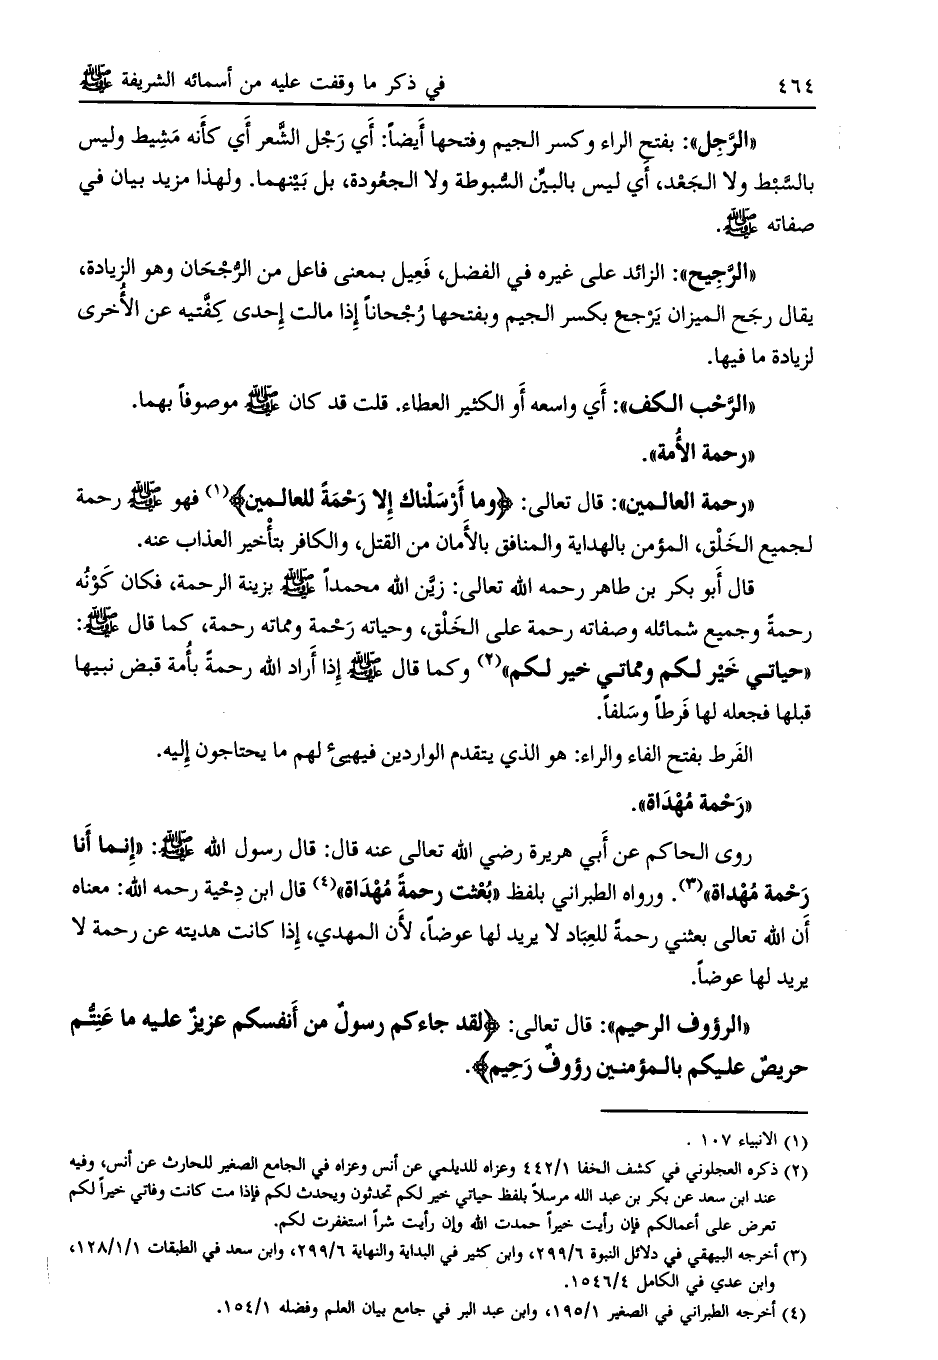 ٤٦٤ في ذكر ما وقفت عليه من أسمائه الشريفة ﷺ
«الرَّجِل»: بفتح الراء وكسر الجيم وفتحها أيضاً: أَي رَجْل الشَّعر أَي كأَنه مَشِيط وليس
بالسَّبْط ولا الجَعْد، أَي ليس بالبيِّن السُّبوطة ولا الجعُودة، بل بَيْنهما. ولهذا مزيد بيان في
صفاته ﷺ.
«الرَّجِيح»: الزائد على غيره في الفضل، فَعِيل بمعنى فاعل من الرُّجْحَان وهو الزيادة،
يقال رجَح الميزان يَرْجع بكسر الجيم وبفتحها رُجْحاناً إِذا مالت إِحدى كِفَّتيه عن الأُخرى
لزيادة ما فيها.
«الرَّحْب الكف»: أَي واسعه أَو الكثير العطاء. قلت قد كان ﷺ موصوفاً بهما.
«رحمة الأُمة».
«رحمة العالمين»: قال تعالى: ﴿وما أَرْسَلْناك إِلا رَحْمَةً للعالمين﴾(١) فهو ﷺ رحمة
لجميع الخَلْق، المؤمن بالهداية والمنافق بالأَمان من القتل، والكافر بتأْخير العذاب عنه.
قال أَبو بكر بن طاهر رحمه الله تعالى: زيَّن الله محمداً ﷺ بزينة الرحمة، فكان كَوْنُه
رحمةً وجميع شمائله وصفاته رحمة على الخَلْق، وحياته رَحْمة ومماته رحمة، كما قال ﷺ:
«حياتي خَيْر لكم ومماتي خير لكم»(٢) وكما قال ﷺ إِذا أَراد الله رحمةً بأُمة قبض نبيها
قبلها فجعله لها فَرطاً وسَلفاً.
الفَرط بفتح الفاء والراء: هو الذي يتقدم الواردين فيهيئ لهم ما يحتاجون إِليه.
«رَحْمة مُهْدَاة».
روى الحاكم عن أَبي هريرة رضي الله تعالى عنه قال: قال رسول الله ﷺ: «إِنما أَنا
رَحْمة مُهْداة»(٣). ورواه الطبراني بلفظ «بُعْثت رحمةً مُهْدَاة»(٤) قال ابن دِحْية رحمه الله: معناه
أَن الله تعالى بعثني رحمةً للعِبَاد لا يريد لها عوضاً، لأَن المهدي، إِذا كانت هديته عن رحمة لا
يريد لها عوضاً.
«الرؤوف الرحيم»: قال تعالى: ﴿لقد جاءكم رسولٌ من أَنفسكم عزيزٌ عليه ما عَنِتُّم
حريصٌ عليكم بالمؤمنين رؤوفٌ رَحِيم﴾.
(١) الانبياء ١٠٧ .
(٢) ذكره العجلوني في كشف الخفا ٤٤٢/١ وعزاه للديلمي عن أنس وعزاه في الجامع الصغير للحارث عن أنس، وفيه
عند ابن سعد عن بكر بن عبد الله مرسلاً بلفظ حياتي خير لكم تحدثون ويحدث لكم فإذا مت كانت وفاتي خيراً لكم
تعرض على أعمالكم فإن رأيت خيراً حمدت الله وإن رأيت شراً استغفرت لكم.
(٣) أخرجه البيهقي في دلائل النبوة ٢٩٩/٦، وابن كثير في البداية والنهاية ٢٩٩/٦، وابن سعد في الطبقات ١٢٨/١/١،
وابن عدي في الكامل ١٥٤٦/٤.
(٤) أخرجه الطبراني في الصغير ١٩٥/١، وابن عبد البر في جامع بيان العلم وفضله ١٥٤/١.